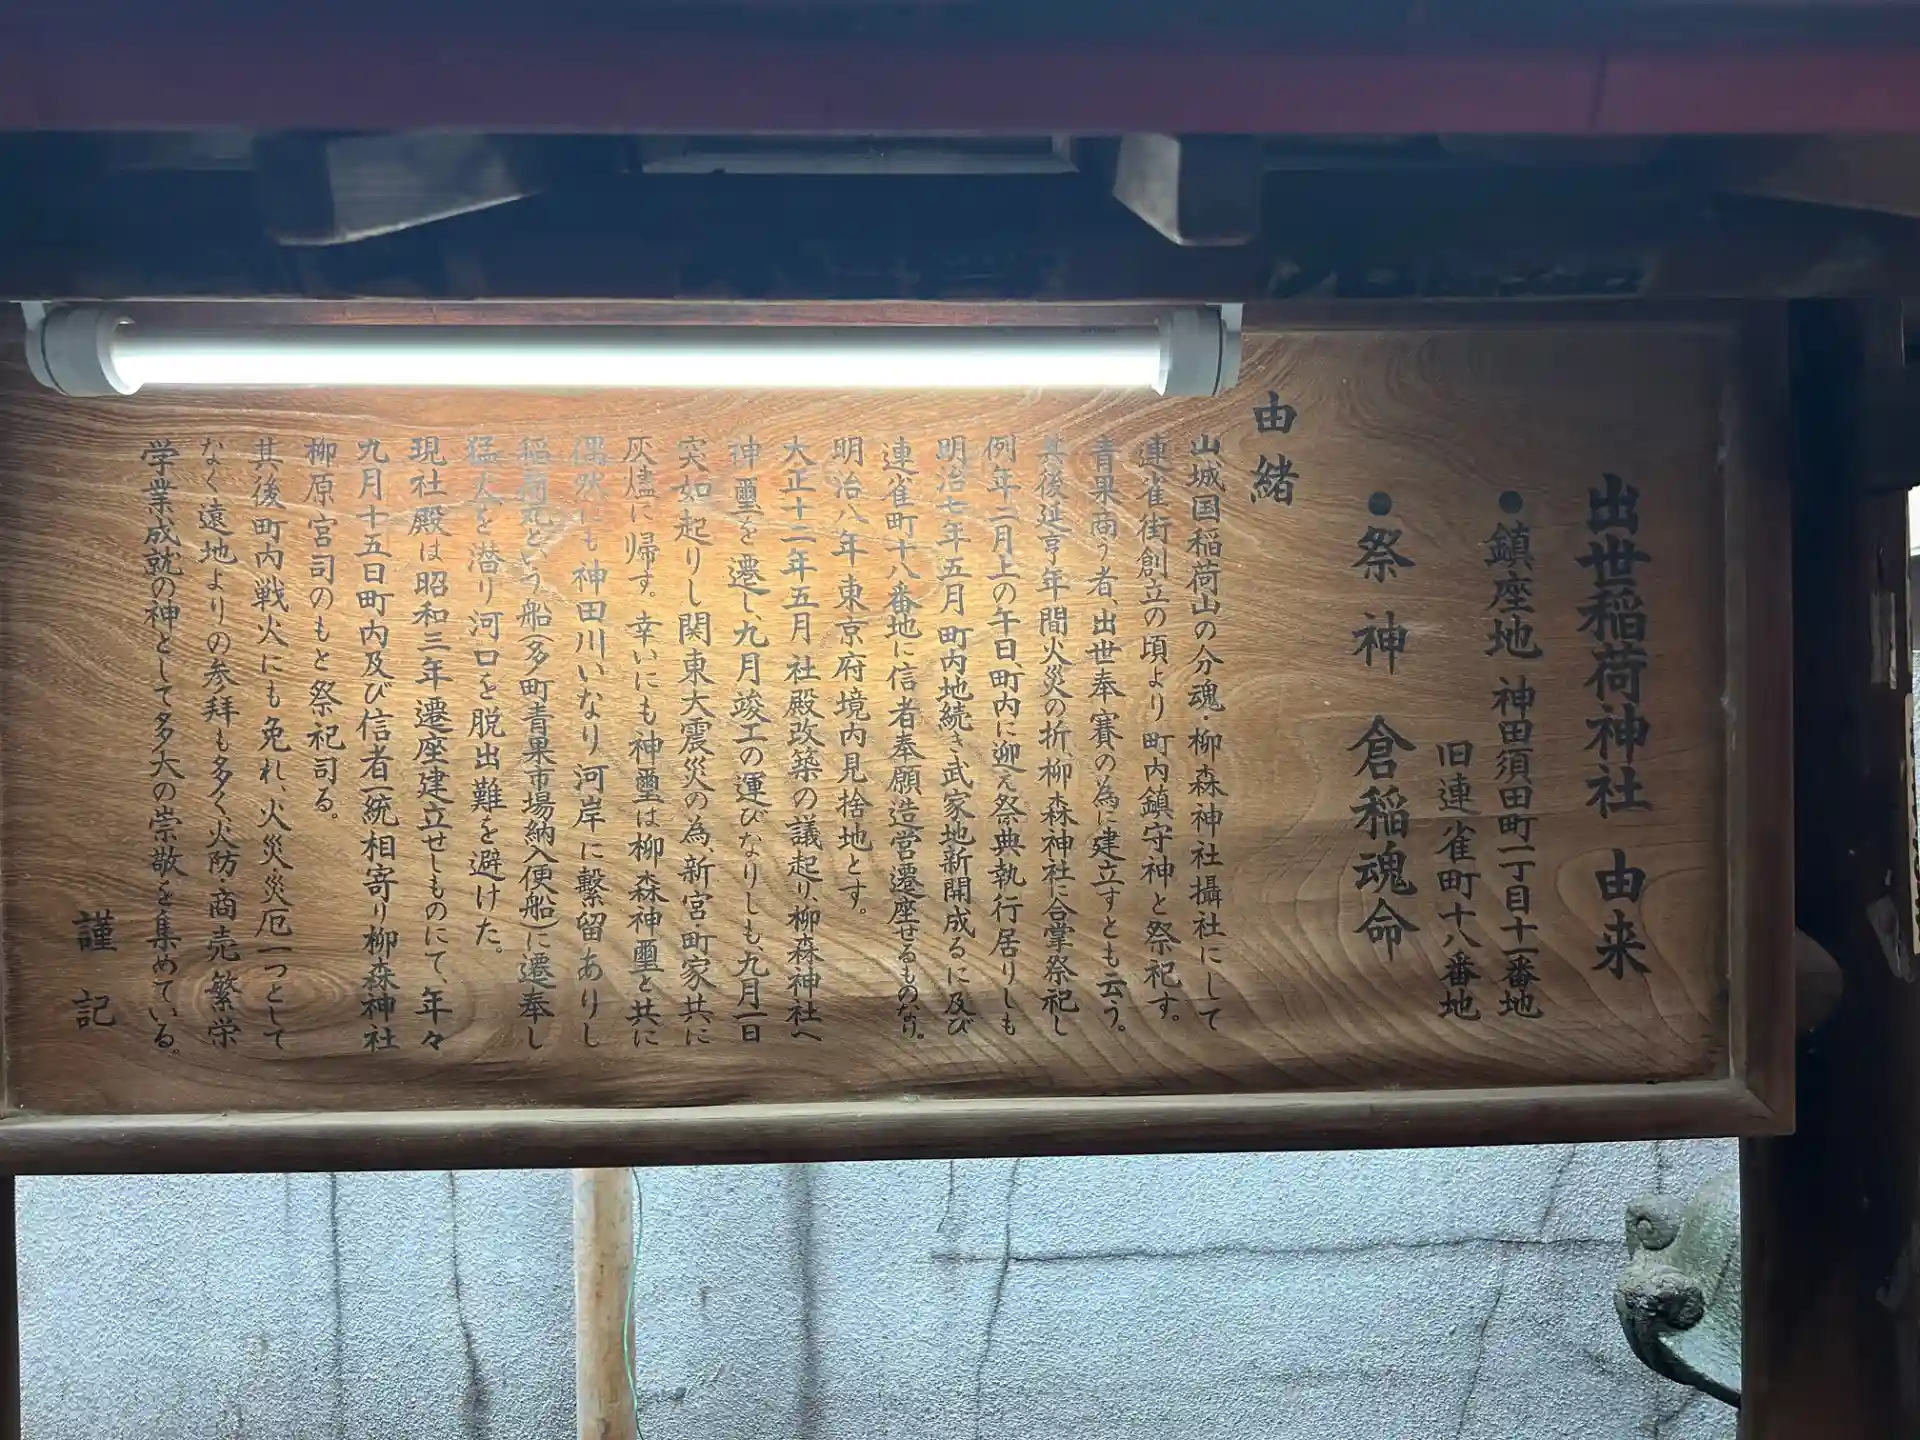 出世稲荷神社 由来
●鎮座地 神田須田町一丁目十一番地
旧連雀町十八番地
●祭神 倉稲魂命
由緒
山城国稲荷山の分魂・柳森神社攝社にして
連雀街創立の頃より町内鎮守神と祭祀す。
青果商う者、出世奉賽の為に建立すとも云う。
其後延亨年間火災の折、柳森神社に合掌祭祀し
例年二月上の午日、町内に迎え祭典執行居りしも
明治七年五月町内地続き武家地新開成るに及び
連雀町十八番地に信者奉願造営遷座せるものなり。
明治八年東京府境内見捨地とす。
大正十二年五月社殿改築の議起り、柳森神社へ
神璽を遷し、九月竣工の運びなりしも、九月一日
突如起りし関東大震災の為、新宮・町家共に
灰燼に帰す。幸いにも神璽は柳森神璽と共に
偶然にも神田川いなり河岸に繋留ありし
稲荷丸という船(多町青果市場納入便船)に遷奉し
猛火を潜り河口を脱出難を避けた。
現社殿は昭和三年遷座建立せしものにて、年々
九月十五日町内及び信者一統相寄り柳森神社
柳原宮司のもと祭祀司る。
其後町内戦火にも免れ、火災・災厄一つとして
なく遠地よりの参拝も多く、火防・商売繁栄
学業成就の神として多大の崇敬を集めている。
謹記